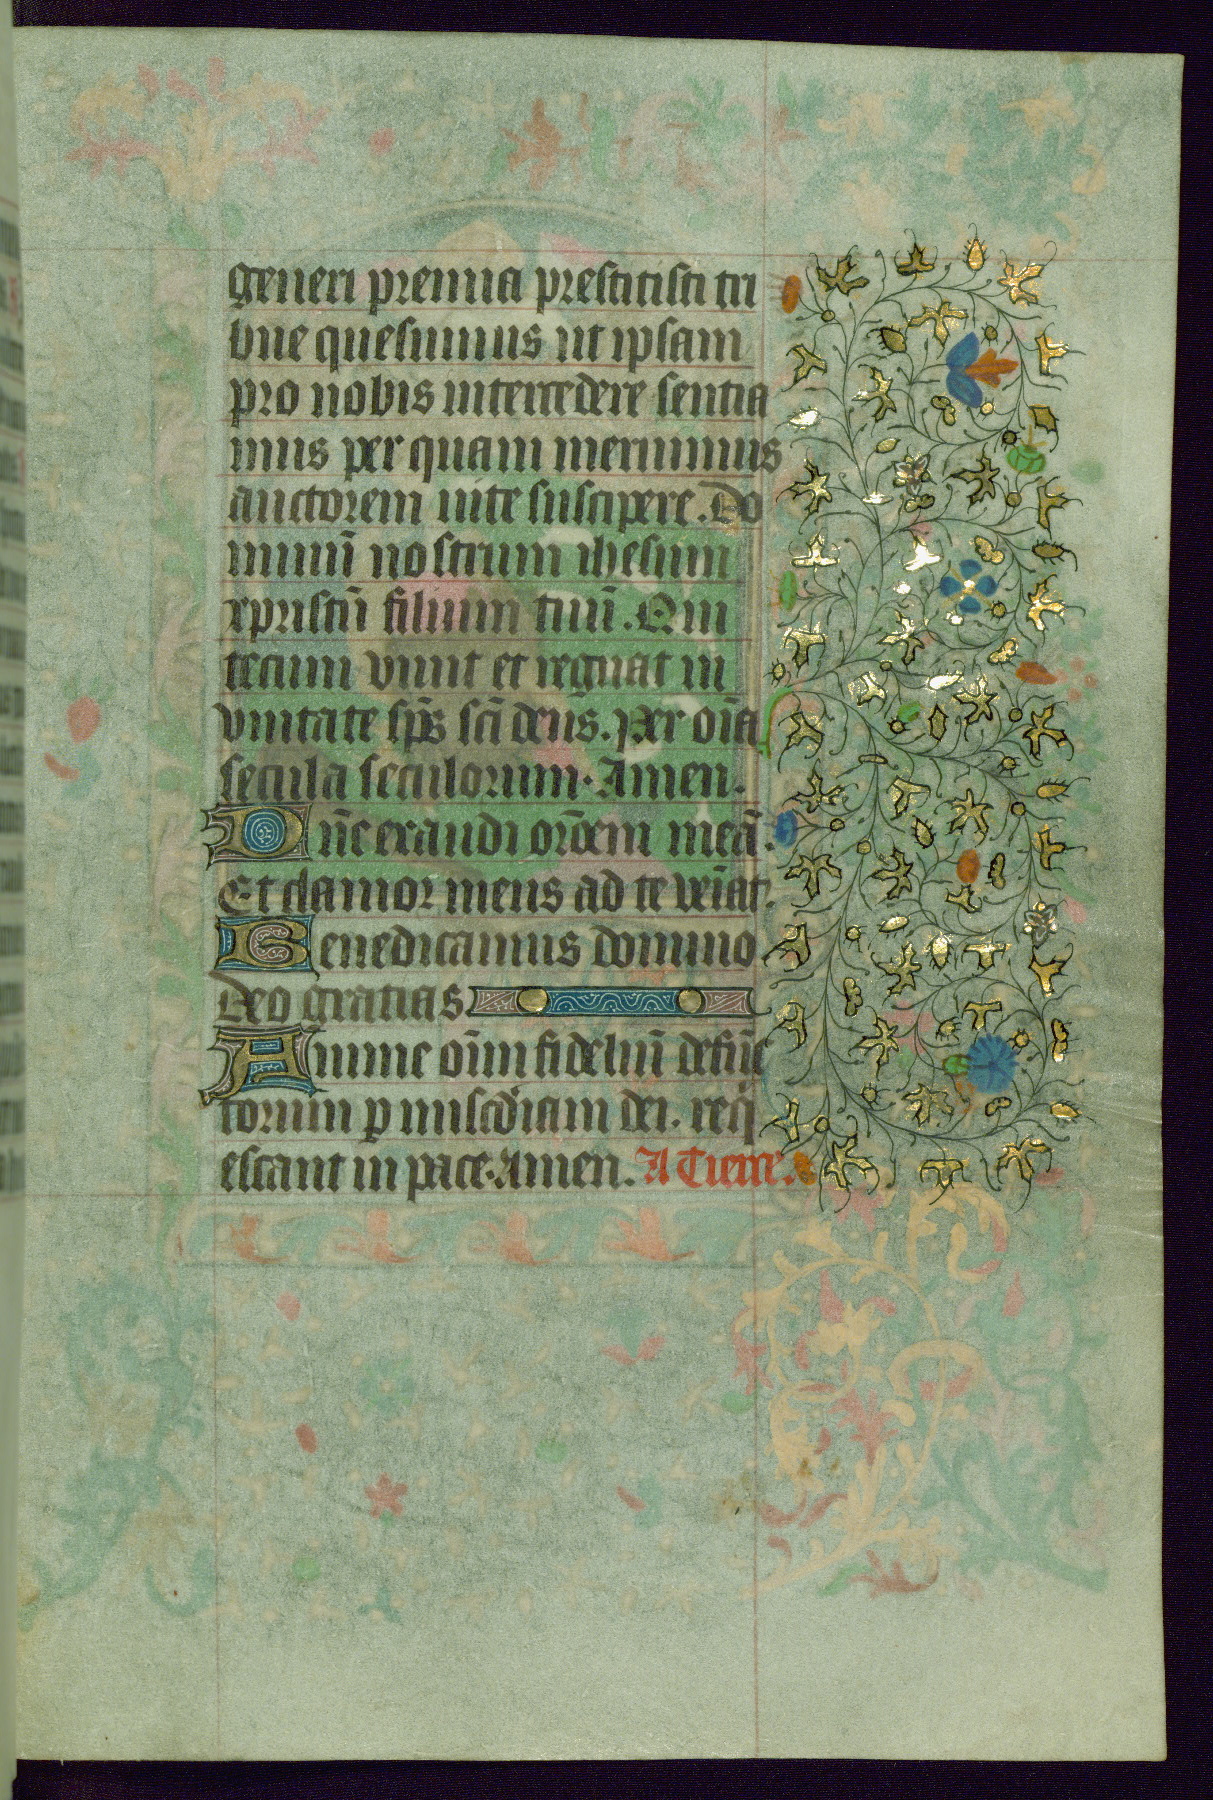 generi premia prestitisti tri
bue quesumus ut ipsam
pro nobis intercedere sentia
mus per quam meruimus
auctorem uite suscipere. Do
minū nostrum ihesum
xpristū filium tuū. Qui
tecum viuit et regnat in
vnitate sp̄s sc̄i deus. Per oīa
secula seculorum. Amen.
Dn̄e exaudi orōem meā.
Et clamor meus ad te ven̄iat.
Benedicamus domino
Deo gratias
Anime oīm fideliū defūc
torum p misc̄diam dei. req̄
escant in pace. Amen. A Tierce.